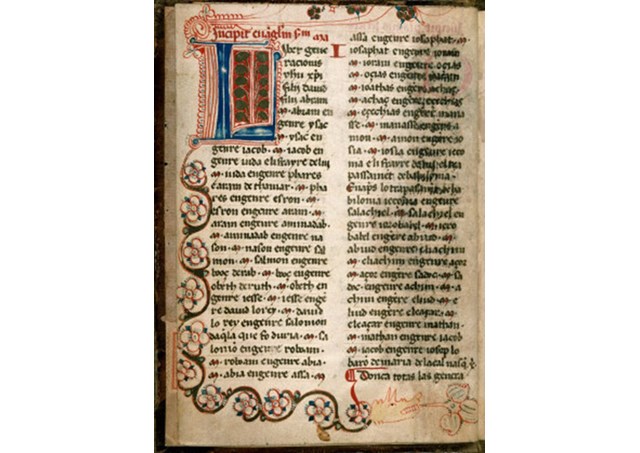 Incipit euãgliu s̃m ma
Liber gene
racionis
yh̃u xp̃i
filii dauid
filii abram
abram en
genre ysac
ysac en
genre iacob. iacob en
genre iuda el frayre de lui
iuda engenre phares
e aram de thamar. pha
res engenre esron.
esron engenre aram.
aram engenre aminadab.
aminadab engenre na
son. nason engenre sal
mon. salmon engenre
booç de rab. booç engenre
obeth de ruth. obeth en
genre iesse. iesse enge
re dauid lo rey. dauid
lo rey engenre salomon
daq̃la que fo d'uria. sa
lomo engenre roboam.
roboam engenre abia.
abia engenre assa.
assa engenre iosaphat.
iosaphat engenre ioram
ioram engenre ocias
ocias engenre ioatam
ioathas engenre achaç.
achaç engenre eçechias
eçechias engenre mana
sse. manasse engenre a
mon. amon engenre io
sia. iosia engenre ieco
nia el frayre de lui en la
passamet de babilonia.
E aprs lo trapassamet de ba
bilonia ieconia engenre
salachiel. salachiel en
genre çorobabel. çoro
babel engenre abiud.
abiud engenre eliachim
eliachim engenre açor
açor engẽre sadoc. sa
doc engenre achim. a
chim engẽre eliud. e
liud engenre eleaçar.
eleaçar engenre mathan.
mathan engenre iacob
iacob engenre iosep lo
baro de maria de la cal nasq̃
Donca totas las genera